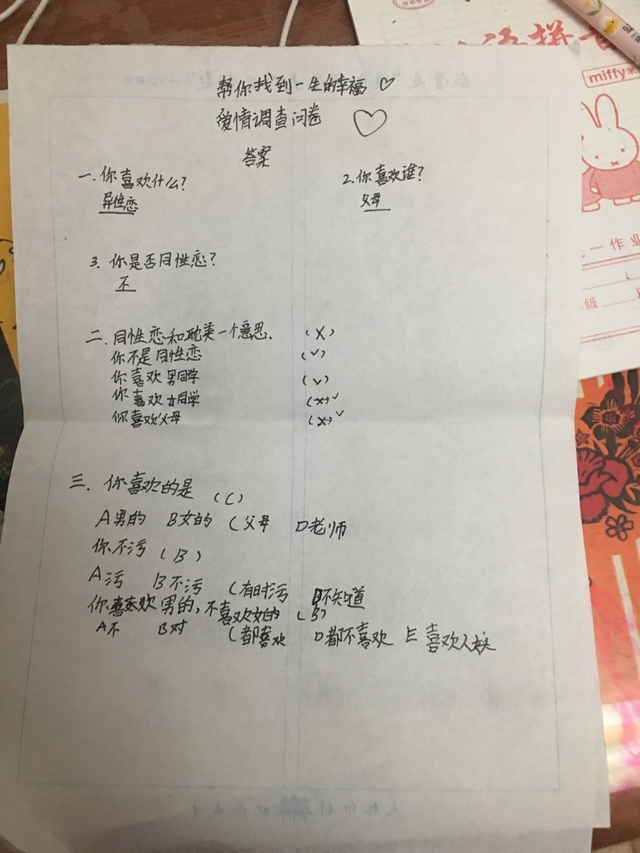 帮你找到一生的幸福♡
爱情调查问卷 ♡
答案
一.你喜欢什么? 2.你喜欢谁?
异性恋 父母
3. 你是否同性恋?
不
二.同性恋和耽美一个意思. (×)
你不是同性恋 (✓)
你喜欢男同学 (✓)
你喜欢女同学 (×)✓
你喜欢父母 (×)✓
三. 你喜欢的是 (C)
A男的 B女的 C父母 D老师
你不污 (B)
A污 B不污 C有时污 D不知道
你喜欢男的,不喜欢女的 (B)
A不 B对 C都喜欢 D都不喜欢 E喜欢人妖
miffy
语拼音
一作业
级